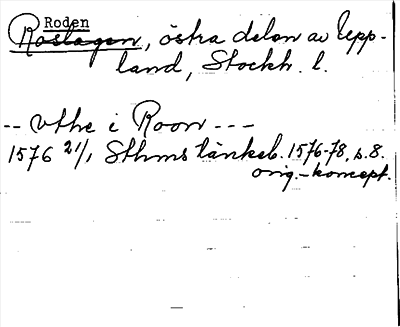 Roden
Roslagen, östra delen av Upp-
land, Stockh. l.
-- vthe i Roon ---
1576 21/1 Sthms tänkeb. 1576-78, s. 8.
orig.-koncept.